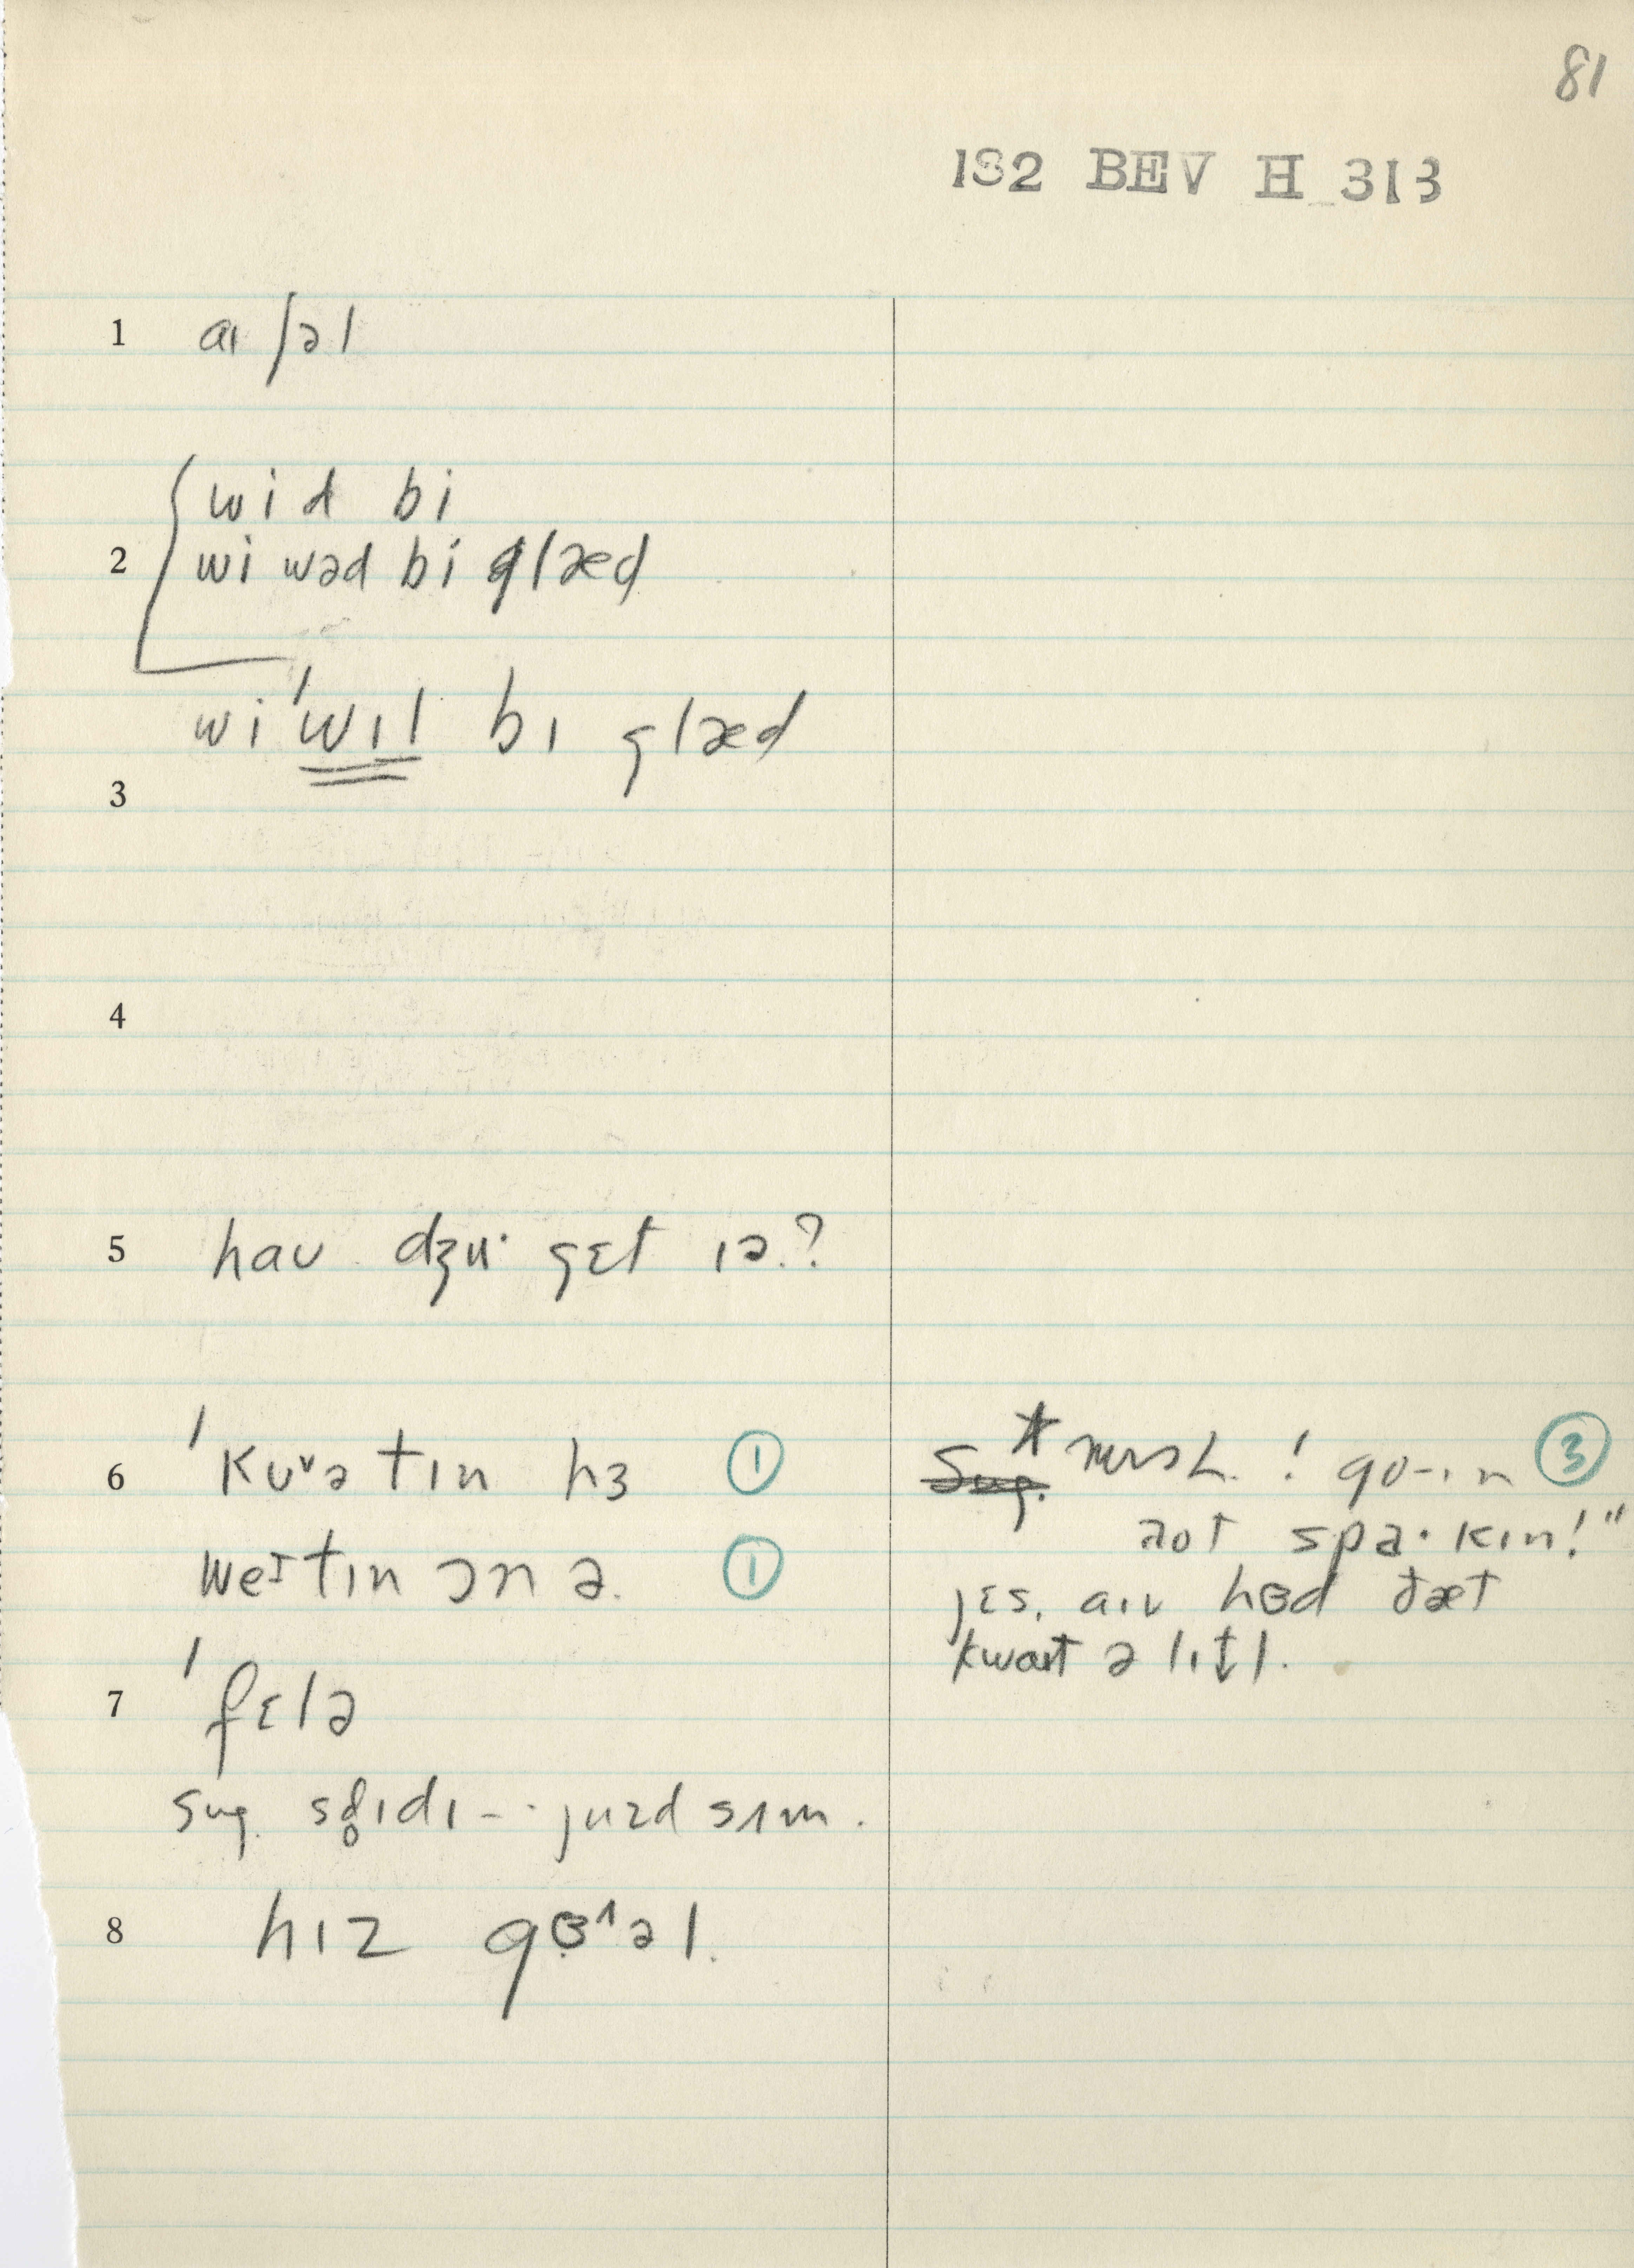 81
1S2 BEV H 313
1 aɪ ʃəl
wi d bi
2 wi wəd bi glæd
wi 'wɪl bɪ glæd
3
4
5 haʊ dʒu· gɛt ɪə.?
6 'kʊᵛə tɪn hɜ ①
weɪtɪn ɔn ə. ①
7 'fɛlə
sug. stɪdɪ -- juzd sɪm.
8 hɪz gɞ^əl.
* ! go-ɪn ③
aʊt spa·kɪn!"
jɛs, aɪv hɞd ðæt
kwaɪt ə lɪtl.